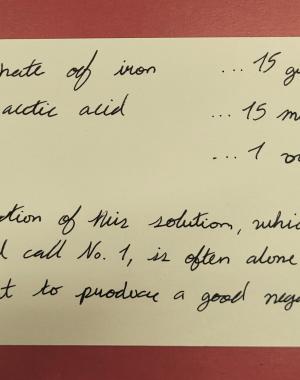 hate of iron ... 15 g
actic acid ... 15 m
... 1 o
tion of this solution, whic
l call No. 1, is often alone
t to produce a good nega